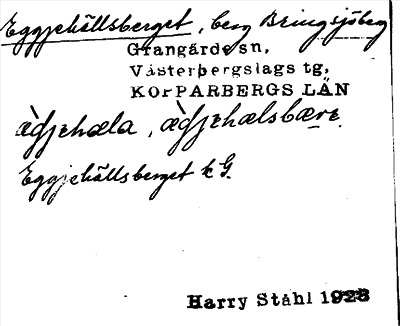 Eggjehällsberget, berg Bringsjöberg
Grangärde sn,
Västerbergslags tg,
KOPPARBERGS LÄN
æ̀gjehæla, æ̀gjehælsbære.
Eggjehällsberget k G.
Harry Ståhl 1928